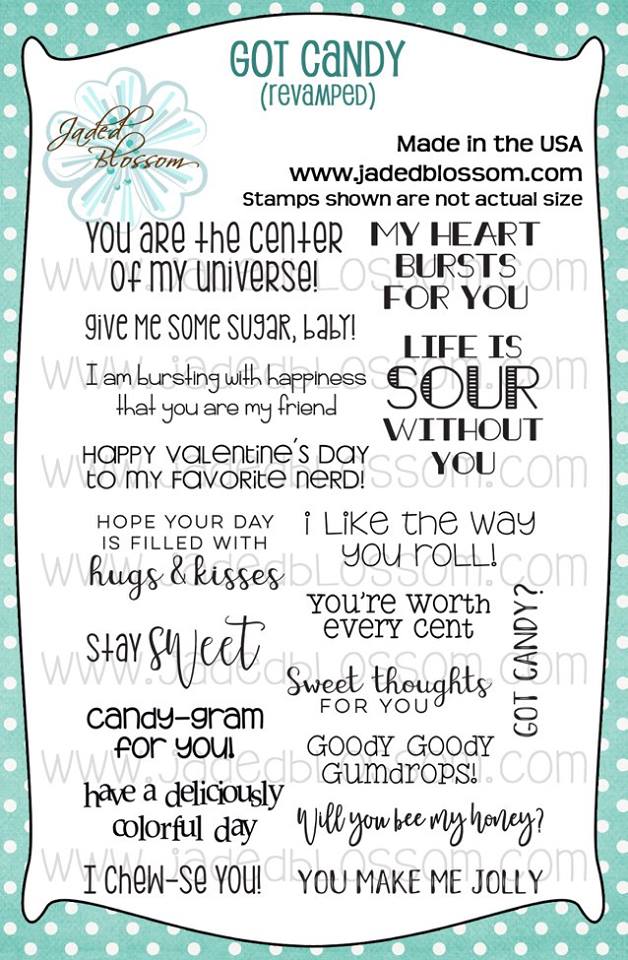 GOT CANDY
(revamped)
Jaded
Blossom
Made in the USA
www.jadedblossom.com
Stamps shown are not actual size
You are the center
of my universe!
give me some sugar, baby!
I am bursting with happiness
that you are my friend
Happy Valentine's Day
to my favorite nerd!
HOPE YOUR DAY
IS FILLED WITH
hugs & kisses
stay sweet
candy-gram
for you!
have a deliciously
colorful day
I chew-se you!
MY HEART
BURSTS
FOR YOU
LIFE IS
SOUR
WITHOUT
YOU
i like the way
you roll!
You're worth
every cent
GOT CANDY?
Sweet thoughts
FOR YOU
Goody Goody
Gumdrops!
Will you bee my honey?
YOU MAKE ME JOLLY
www.jadedblossom.com
www.jadedblossom.com
www.jadedblossom.com
www.jadedblossom.com
www.jadedblossom.com
www.jadedblossom.com
www.jadedblossom.com